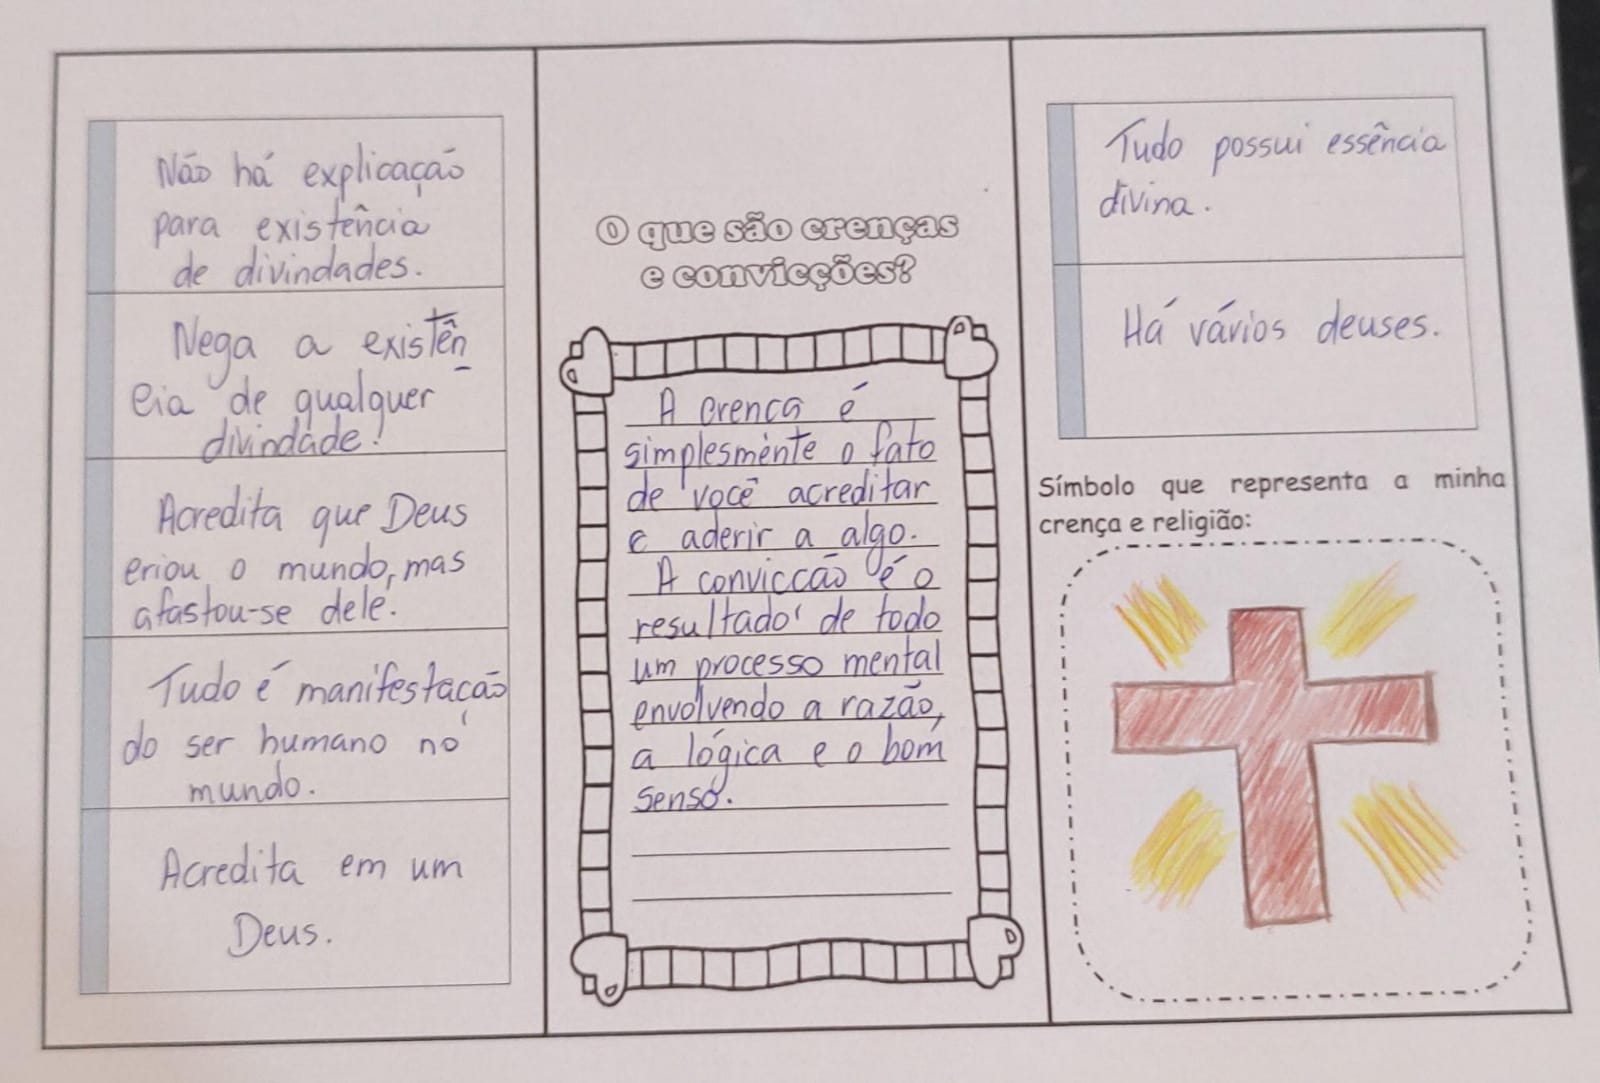 Não há explicação
para existência
de divindades.
Nega a existên
cia de qualquer
divindade.
Acredita que Deus
criou o mundo, mas
afastou-se dele.
Tudo é manifestação
do ser humano no
mundo.
Acredita em um
Deus.
O que são crenças
e convicções?
A crença é
simplesmente o fato
de você acreditar
e aderir a algo.
A convicção é o
resultado de todo
um processo mental
envolvendo a razão,
a lógica e o bom
senso.
Tudo possui essência
divina.
Há vários deuses.
Símbolo que representa a minha
crença e religião: